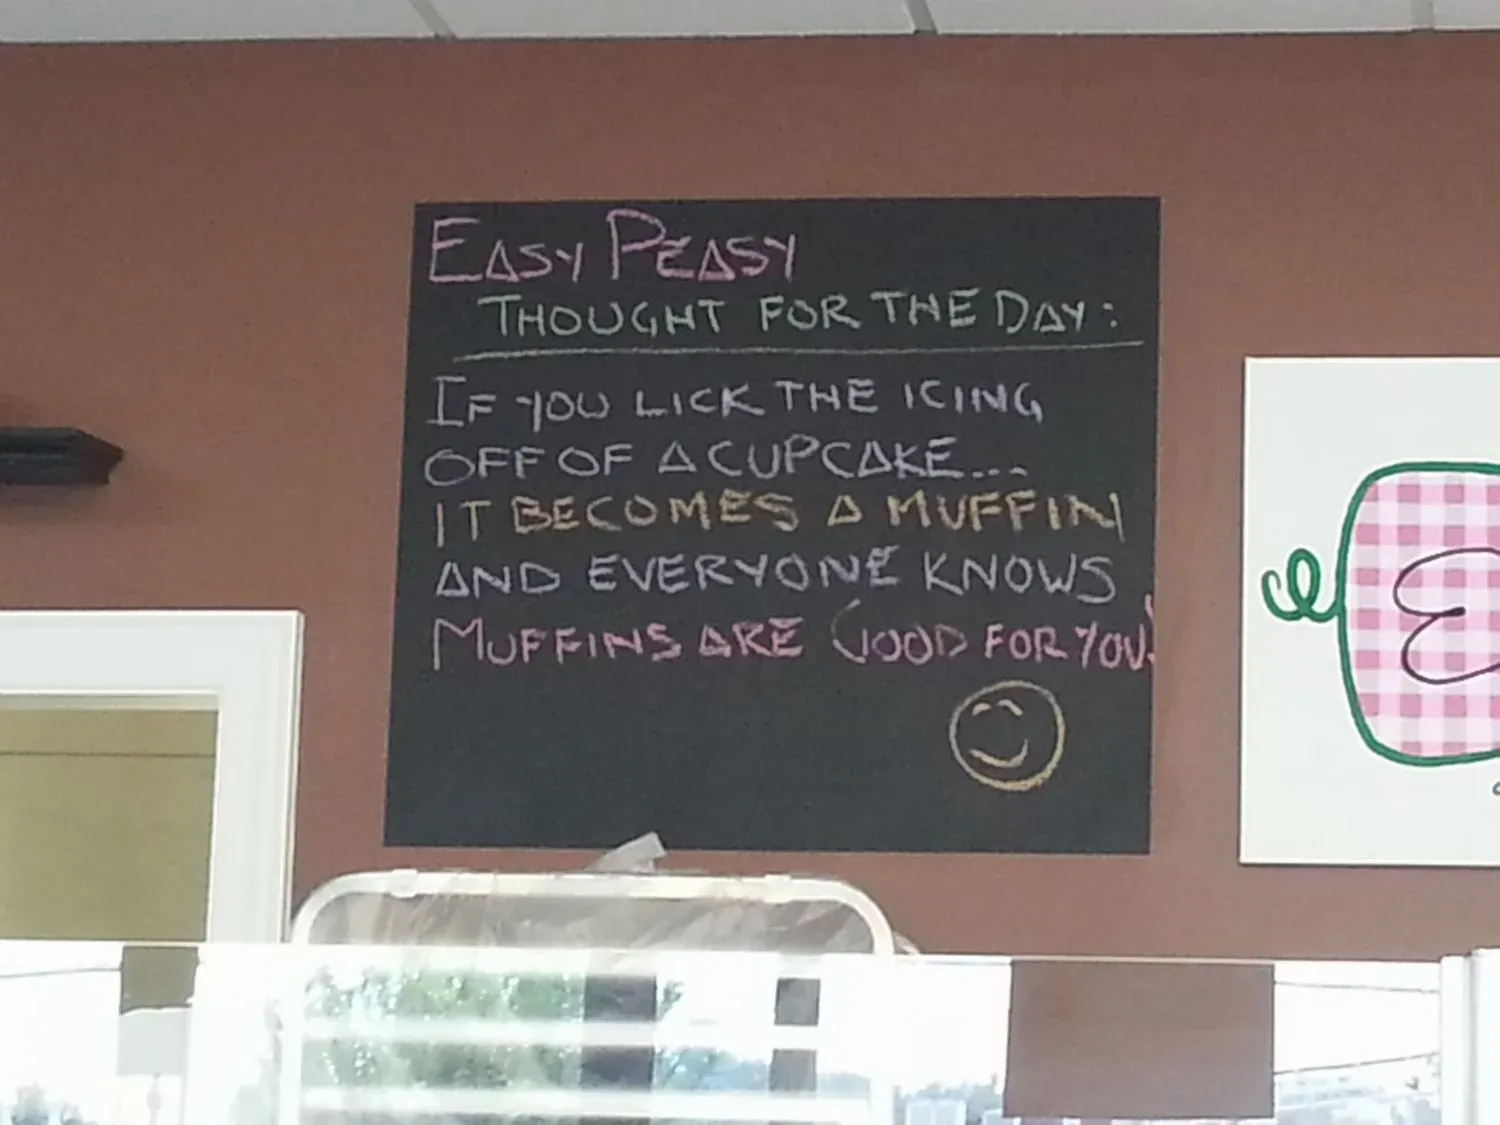 EASY PEASY
THOUGHT FOR THE DAY:
IF YOU LICK THE ICING
OFF OF A CUPCAKE...
IT BECOMES A MUFFIN
AND EVERYONE KNOWS
MUFFINS ARE GOOD FOR YOU!
E